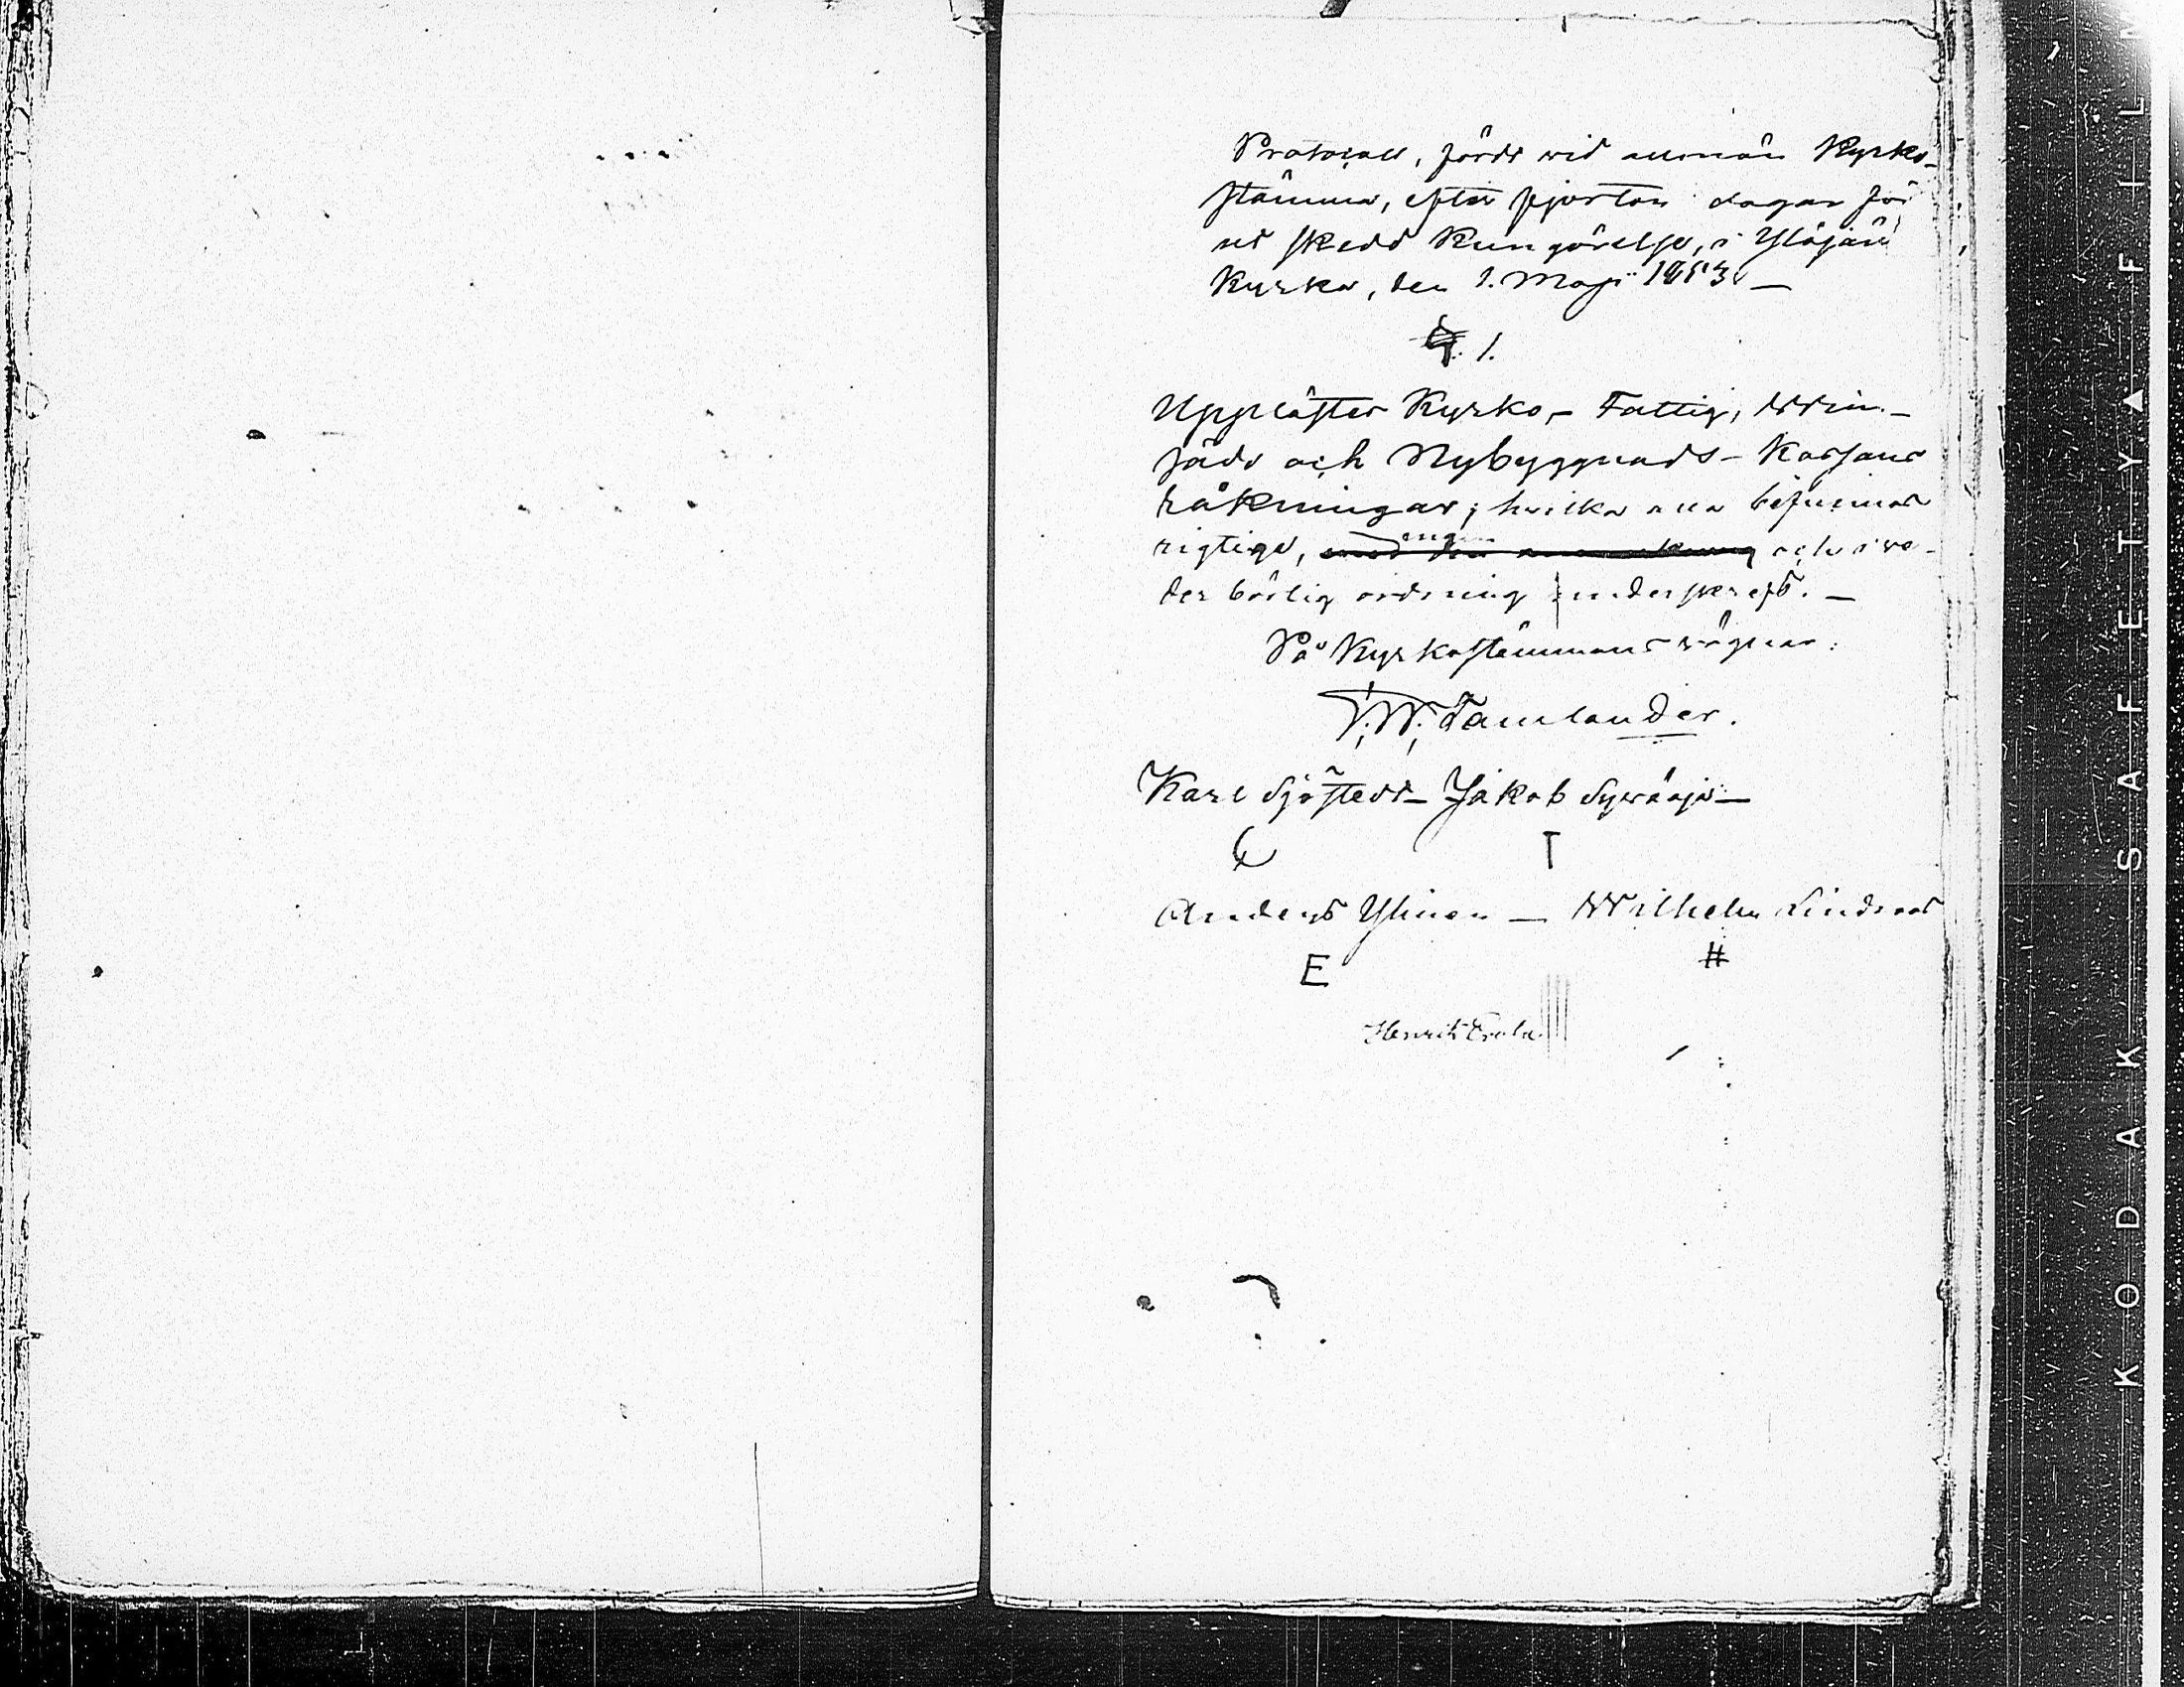 Protocoll, fördt wid allmän Kyrko-
stämma, efter fjorton dagar för
ut skedd Kungörelse, i Ylöjärvi
Kyrka, den 1. Maji 1853 —
§. 1.
Upplästes Kyrko,- Fattig,
och Nybyggnads- Kassans
räkningar; hvilka alla befunnos
rigtige, och i ve-
derbörlig ordning underskrefs. —
På Kyrkostämmans vägnar:
Tamlander.
Karl Sjöstedt — Jakob
T
Anders Ylinen — Wilhelm
E #
Henrik Erola
KODAK SAFETY ▲ FILM